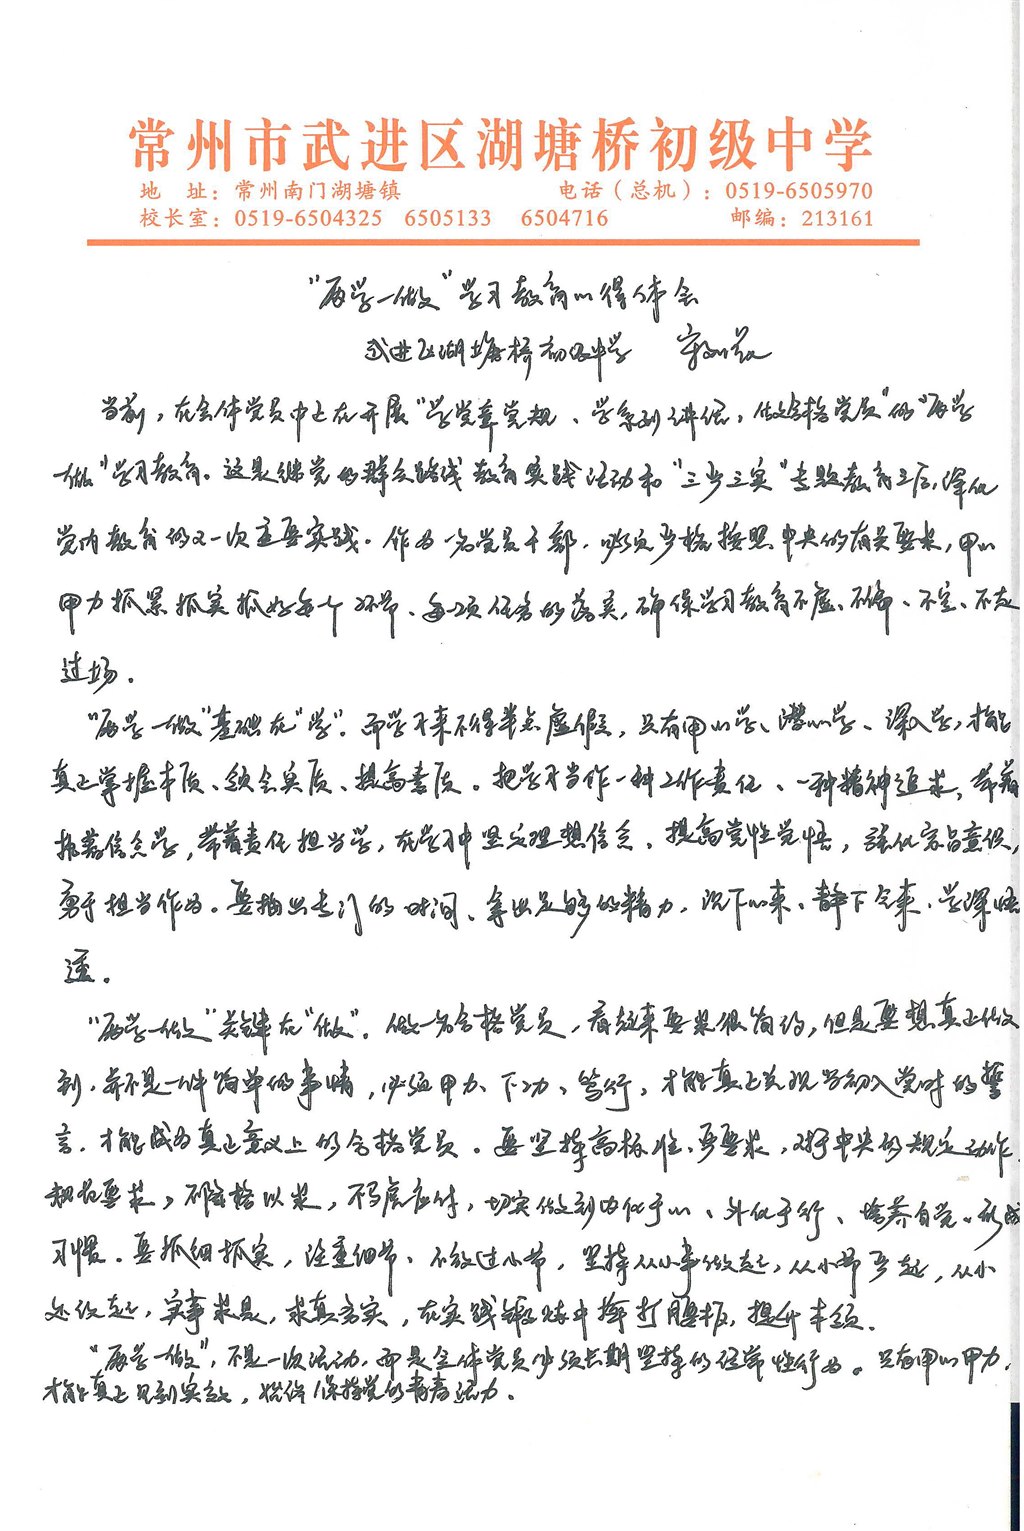 常州市武进区湖塘桥初级中学
地 址：常州南门湖塘镇 电话（总机）：0519-6505970
校长室：0519-6504325 6505133 6504716 邮编：213161
“两学一做”学习教育心得体会
武进区湖塘桥初级中学
当前，在全体党员中正在开展“学党章党规、学系列讲话，做合格党员”的“两学
一做”学习教育。这是继党的群众路线教育实践活动和“三严三实”专题教育之后，深化
党内教育的又一次重要实践。作为一名党员干部，必须严格按照中央的有关要求，用心
用力抓紧抓实抓好每个环节、每项任务的落实，确保学习教育不虚、不偏、不空、不走
过场。
“两学一做”基础在“学”。而学习来不得半点虚假，只有用心学、潜心学、深入学，才能
真正掌握本质、领会实质、提高素质。把学习当作一种工作责任、一种精神追求，带着
执着信念学，带着责任担当学，在学习中坚定理想信念、提高党性觉悟，强化宗旨意识，
勇于担当作为。要抽出专门的时间、拿出足够的精力，沉下心来、静下气来、学深悟
透。
“两学一做”关键在“做”。做一名合格党员，看起来要求很简约，但是要想真正做
到，并不是一件简单的事情，必须用力、下功、笃行，才能真正兑现当初入党时的誓
言，才能成为真正意义上的合格党员。要坚持高标准、严要求，对于中央的规定动作、
相关要求，严格以求，不弄虚应付，切实做到内化于心、外化于行、培养自觉、形成
习惯。要抓细抓实，注重细节、不放过小节，坚持从小事做起，从小节严起，从小
处议起，实事求是，求真务实，在实践锻炼中摔打腿板，提升本领。
“两学一做”，不是一次活动，而是全体党员必须长期坚持的经常性行为。只有用心用力，
才能真正见到实效，始终保持党的青春活力。